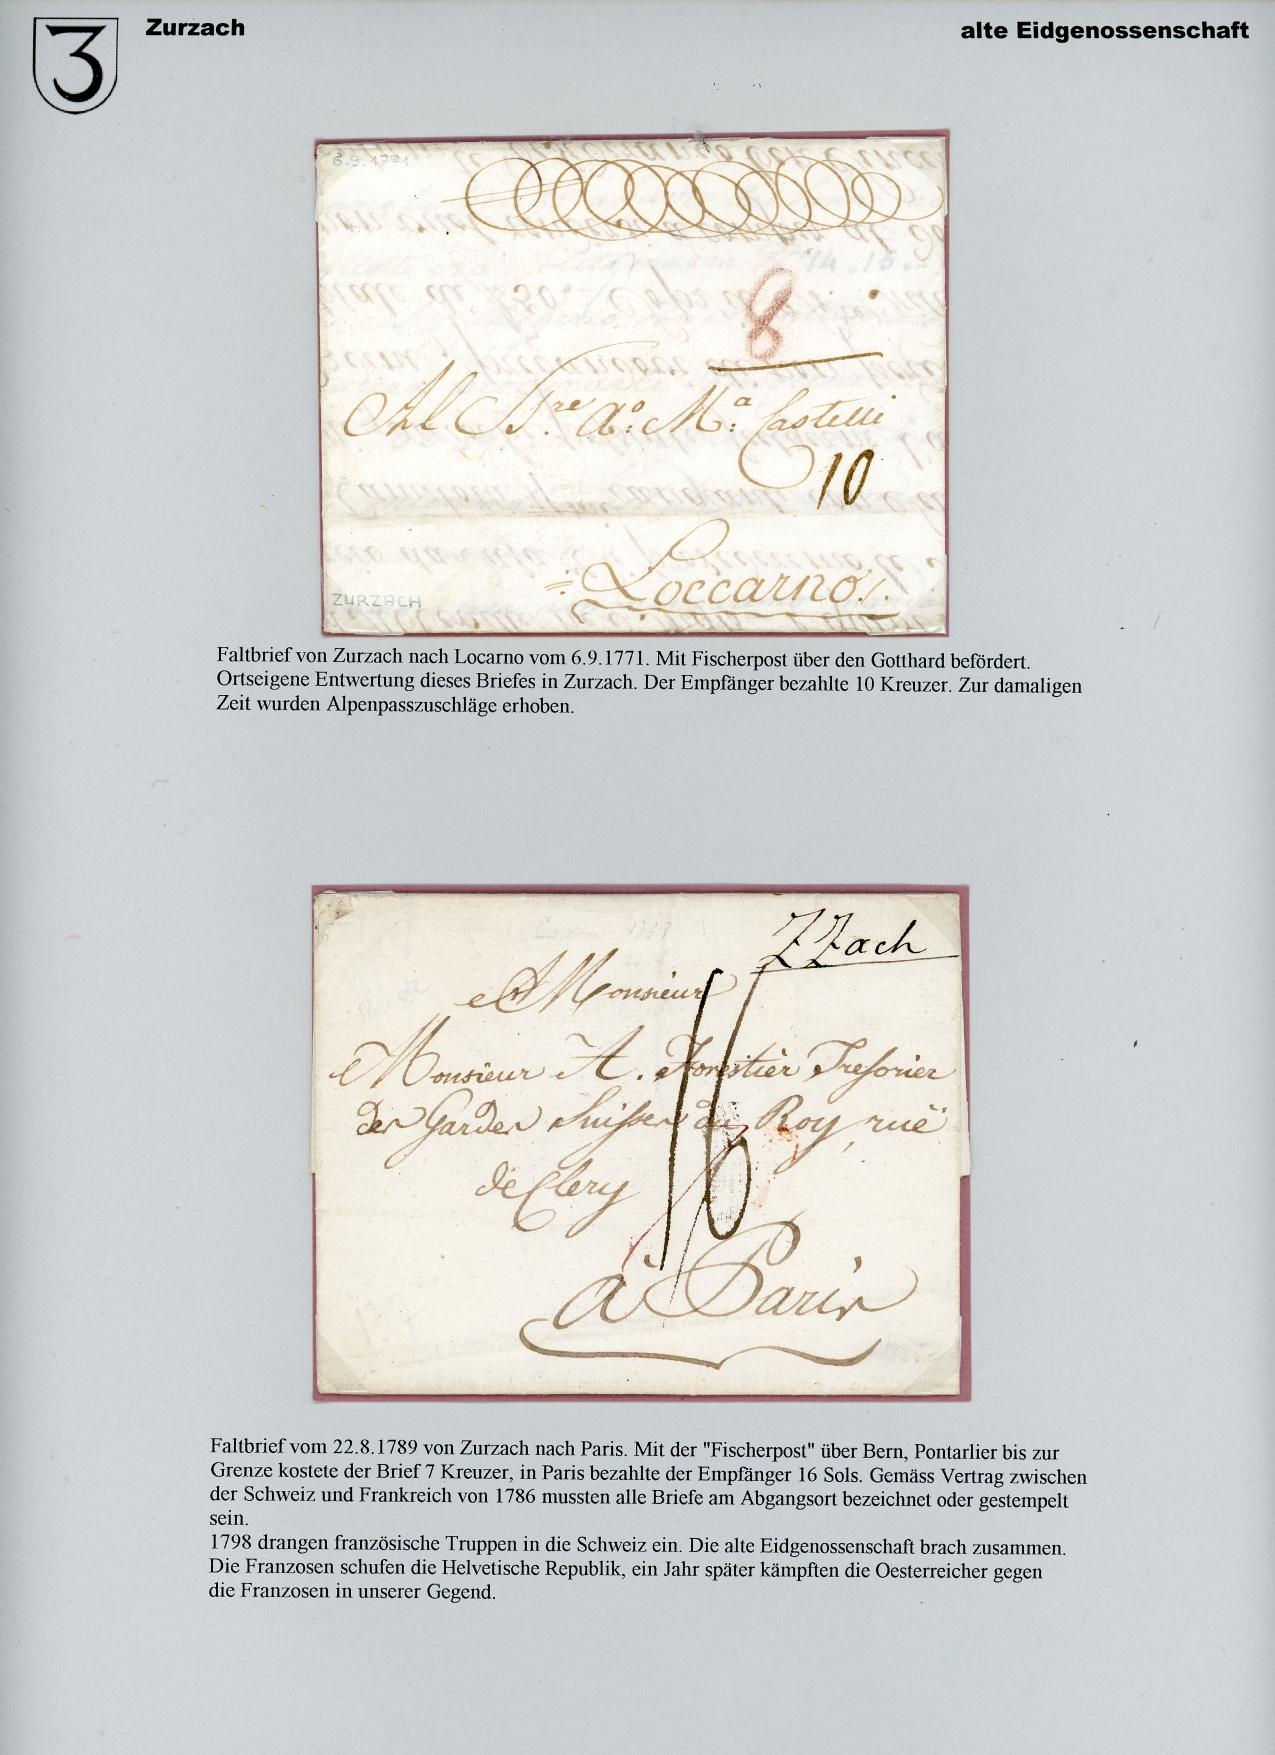 3
Zurzach
alte Eidgenossenschaft
6.9.1771
8
Al Sre. Ao: Ma: Castelli
10
Loccarno
ZURZACH
Faltbrief von Zurzach nach Locarno vom 6.9.1771. Mit Fischerpost über den Gotthard befördert.
Ortseigene Entwertung dieses Briefes in Zurzach. Der Empfänger bezahlte 10 Kreuzer. Zur damaligen
Zeit wurden Alpenpasszuschläge erhoben.
ZZach
A Monsieur
Monsieur A. Forestier Tresorier
des Gardes Suisses du Roy, ruë
de Clery
16
à Paris
Faltbrief vom 22.8.1789 von Zurzach nach Paris. Mit der "Fischerpost" über Bern, Pontarlier bis zur
Grenze kostete der Brief 7 Kreuzer, in Paris bezahlte der Empfänger 16 Sols. Gemäss Vertrag zwischen
der Schweiz und Frankreich von 1786 mussten alle Briefe am Abgangsort bezeichnet oder gestempelt
sein.
1798 drangen französische Truppen in die Schweiz ein. Die alte Eidgenossenschaft brach zusammen.
Die Franzosen schufen die Helvetische Republik, ein Jahr später kämpften die Oesterreicher gegen
die Franzosen in unserer Gegend.